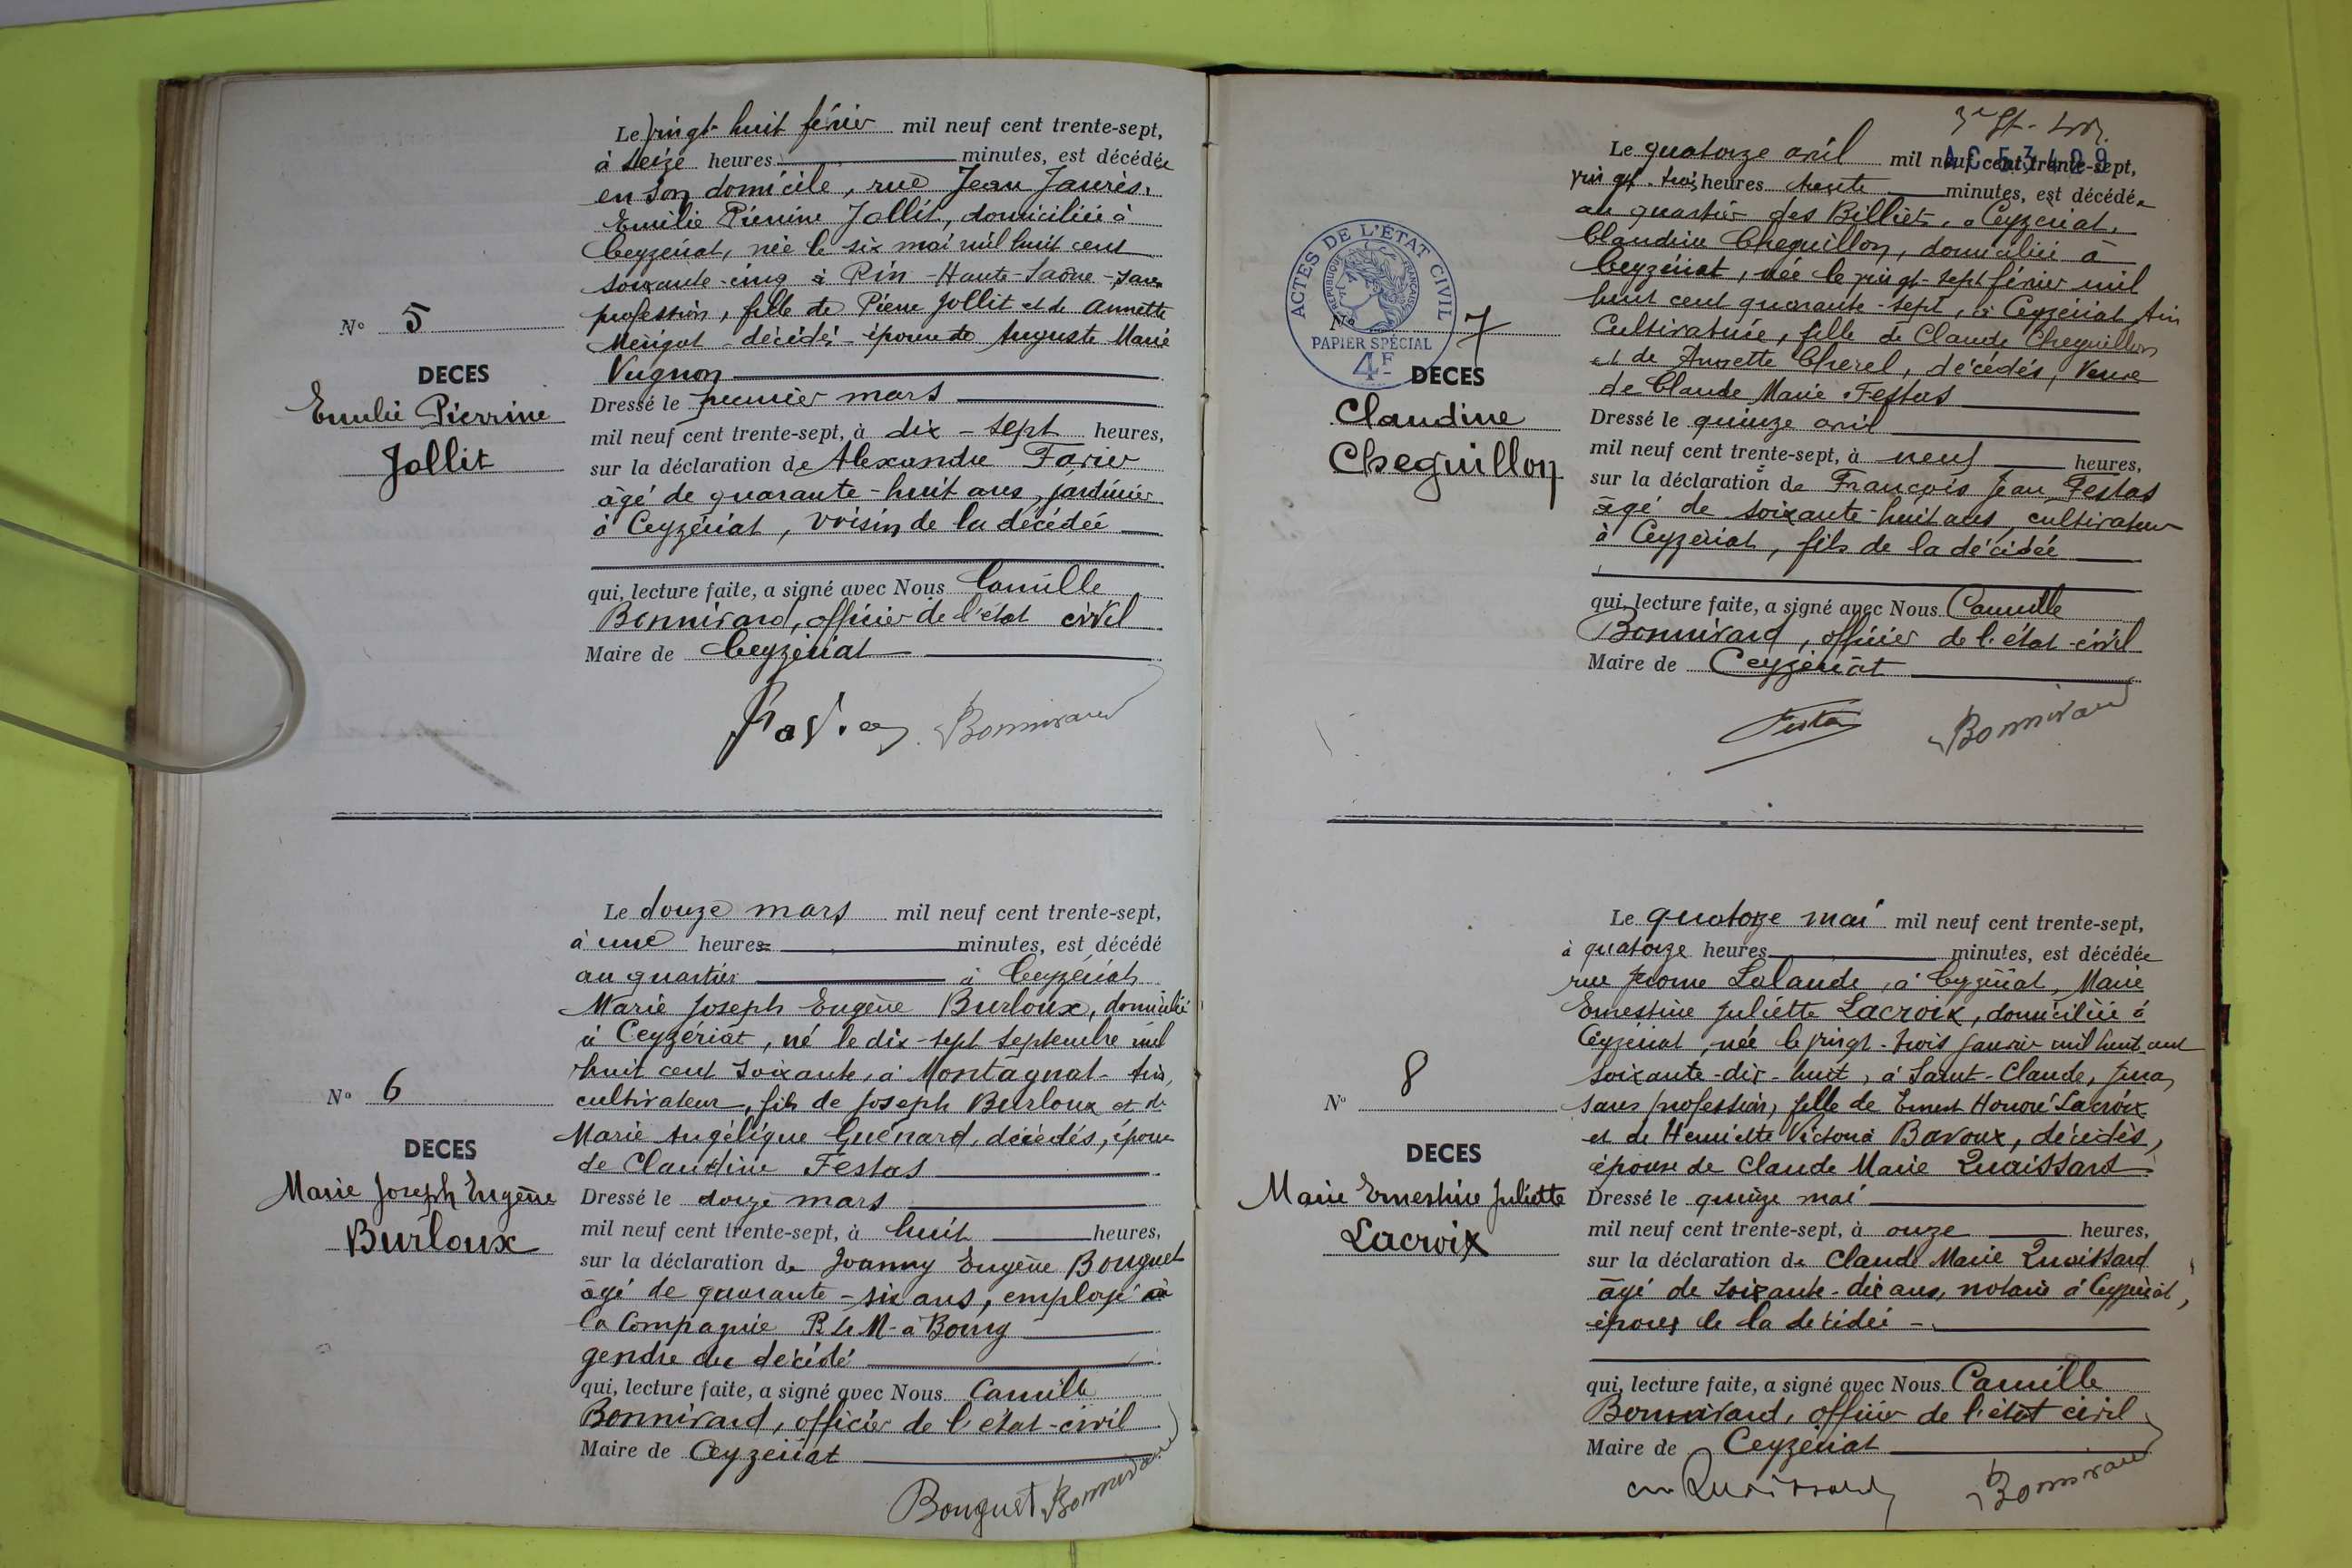 Le vingt-huit février mil neuf cent trente-sept,
à seize heures minutes, est décédée
en son domicile, rue Jean Jaurès,
Emilie Pierrine Jollit, domiciliée à
Ceyzériat, née le six mai mil huit cent
soixante-cinq à Pin - Haute-Saône - sans
profession, fille de Pierre Jollit et de Annette
Merigot - décédés - épouse de Auguste Marie
Vugnon
Nº 5
DECES
Emilie Pierrine
Jollit
Dressé le premier mars
mil neuf cent trente-sept, à dix-sept heures,
sur la déclaration de Alexandre Favier
âgé de quarante-huit ans, jardinier
à Ceyzériat, voisin de la décédée
qui, lecture faite, a signé avec Nous Camille
Bonnivard, officier de l'état civil
Maire de Ceyzériat
Bonnivard
Le douze mars mil neuf cent trente-sept,
à une heures minutes, est décédé
au quartier à Ceyzériat
Marie Joseph Eugène Burloux, domicilié
à Ceyzériat, né le dix-sept septembre mil
huit cent soixante, à Montagnat - Ain,
cultivateur, fils de Joseph Burloux et de
Marie Angélique Guénard, décédés, époux
de Claudine Festas
Nº 6
DECES
Marie Joseph Eugène
Burloux
Dressé le douze mars
mil neuf cent trente-sept, à huit heures,
sur la déclaration de Joanny Eugène Bouguet
âgé de quarante-six ans, employé à
la Compagnie P.L.M. à Bourg
gendre du décédé
qui, lecture faite, a signé avec Nous Camille
Bonnivard, officier de l'état-civil
Maire de Ceyzériat
Bouguet Bonnivard
AC 53409
Le quatorze avril mil neuf cent trente-sept,
vingt-trois heures trente minutes, est décédée
au quartier des Billiets, à Ceyzériat,
Claudine Cheguillon, domiciliée à
Ceyzériat, née le vingt-sept février mil
huit cent quarante-sept, à Ceyzériat, Ain
Cultivatrice, fille de Claude Cheguillon
et de Annette Cherel, décédés, veuve
de Claude Marie Festas
ACTES DE L'ÉTAT CIVIL
RÉPUBLIQUE FRANÇAISE
PAPIER SPÉCIAL
4F
Nº 7
DECES
Claudine
Cheguillon
Dressé le quinze avril
mil neuf cent trente-sept, à neuf heures,
sur la déclaration de François Jean Festas
âgé de soixante-huit ans, cultivateur
à Ceyzériat, fils de la décédée
qui, lecture faite, a signé avec Nous Camille
Bonnivard, officier de l'état-civil
Maire de Ceyzériat
Festas Bonnivard
Le quatorze mai mil neuf cent trente-sept,
à quatorze heures minutes, est décédée
rue Jérome Lalande, à Ceyzériat, Marie
Ernestine Juliette Lacroix, domiciliée à
Ceyzériat, née le vingt-trois janvier mil huit cent
soixante-dix-huit, à Saint-Claude, Jura,
sans profession, fille de Ernest Honoré Lacroix
et de Henriette Victoria Bavoux, décédés,
épouse de Claude Marie Quaissard
Nº 8
DECES
Marie Ernestine Juliette
Lacroix
Dressé le quinze mai
mil neuf cent trente-sept, à onze heures,
sur la déclaration de Claude Marie Quaissard
âgé de soixante-dix ans, notaire à Ceyzériat,
époux de la décédée
qui, lecture faite, a signé avec Nous Camille
Bonnivard, officier de l'état civil
Maire de Ceyzériat
Quaissard Bonnivard